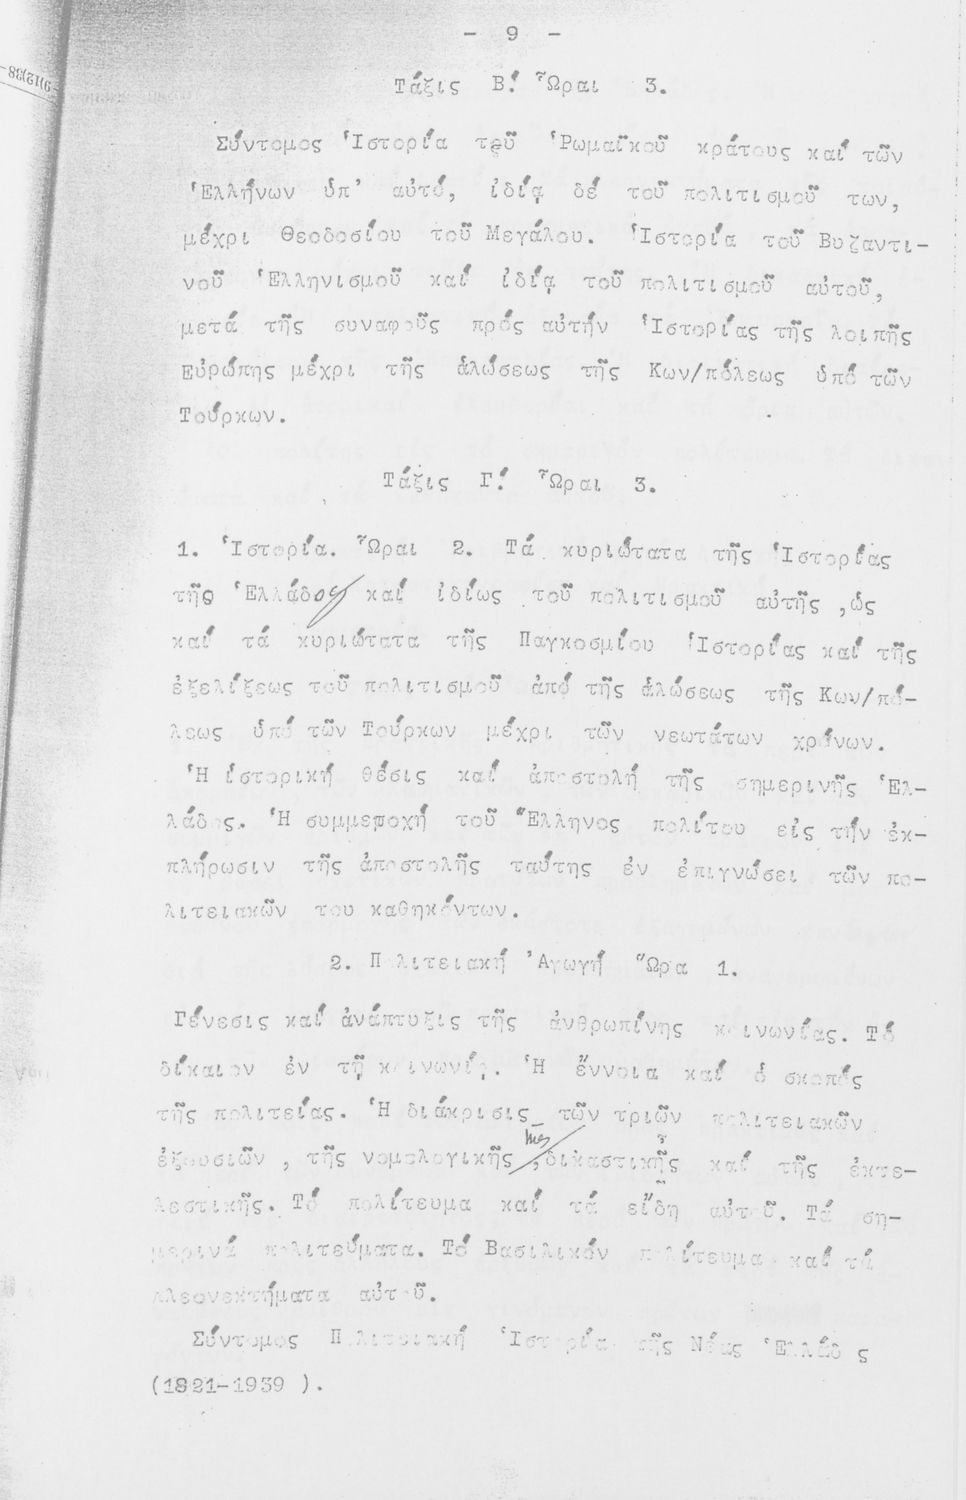 - 9 -
Τάξις Β΄. Ὧραι 3.
Σύντομος Ἱστορία τοῦ Ῥωμαϊκοῦ κράτους καί τῶν
Ἑλλήνων ὑπ' αὐτό, ἰδίᾳ δέ τοῦ πολιτισμοῦ των,
μέχρι Θεοδοσίου τοῦ Μεγάλου. Ἱστορία τοῦ Βυζαντι-
νοῦ Ἑλληνισμοῦ καί ἰδίᾳ τοῦ πολιτισμοῦ αὐτοῦ,
μετά τῆς συναφοῦς πρός αὐτήν Ἱστορίας τῆς λοιπῆς
Εὐρώπης μέχρι τῆς ἁλώσεως τῆς Κων/πόλεως ὑπό τῶν
Τούρκων.
Τάξις Γ΄. Ὧραι 3.
1. Ἱστορία. Ὧραι 2. Τά κυριώτατα τῆς Ἱστορίας
τῆς Ἑλλάδος καί ἰδίως τοῦ πολιτισμοῦ αὐτῆς ,ὡς
καί τά κυριώτατα τῆς Παγκοσμίου Ἱστορίας καί τῆς
ἐξελίξεως τοῦ πολιτισμοῦ ἀπό τῆς ἁλώσεως τῆς Κων/πό-
λεως ὑπό τῶν Τούρκων μέχρι τῶν νεωτάτων χρόνων.
Ἡ ἱστορική θέσις καί ἀποστολή τῆς σημερινῆς Ἑλ-
λάδος. Ἡ συμμετοχή τοῦ Ἕλληνος πολίτου εἰς τήν ἐκ-
πλήρωσιν τῆς ἀποστολῆς ταύτης ἐν ἐπιγνώσει τῶν πο-
λιτειακῶν του καθηκόντων.
2. Πολιτειακή Ἀγωγή Ὥρα 1.
Γένεσις καί ἀνάπτυξις τῆς ἀνθρωπίνης κοινωνίας. Τό
δίκαιον ἐν τῇ κοινωνίᾳ. Ἡ ἔννοια καί ὁ σκοπός
τῆς πολιτείας. Ἡ διάκρισις τῶν τριῶν πολιτειακῶν
ἐξουσιῶν , τῆς νομολογικῆς ,τῆς δικαστικῆς καί τῆς ἐκτε-
λεστικῆς. Τό πολίτευμα καί τά εἴδη αὐτοῦ. Τά ση-
μερινά πολιτεύματα. Τό Βασιλικόν πολίτευμα καί τά
πλεονεκτήματα αὐτοῦ.
Σύντομος Πολιτειακή Ἱστορία τῆς Νέας Ἑλλάδος
(1821-1939 ).